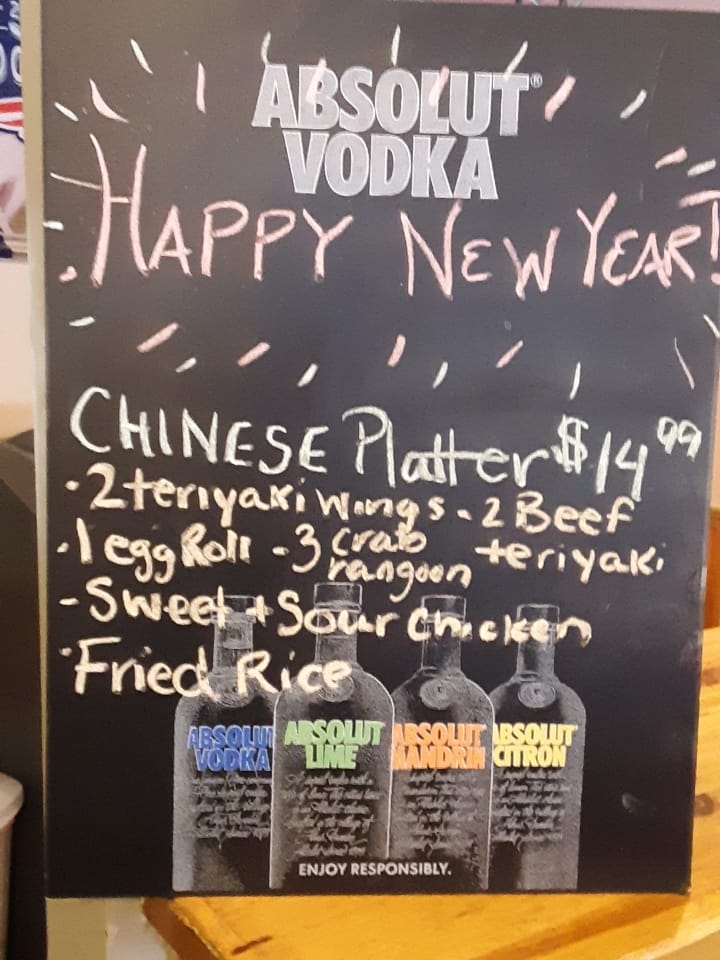 ABSOLUT®
VODKA
HAPPY NEW YEAR!
CHINESE Platter $14 99
·2 teriyaki wings - 2 Beef teriyaki
·1 egg Roll - 3 crab rangoon
- Sweet + Sour Chicken
·Fried Rice
ABSOLUT VODKA
ABSOLUT LIME
ABSOLUT MANDRIN
ABSOLUT CITRON
ENJOY RESPONSIBLY.